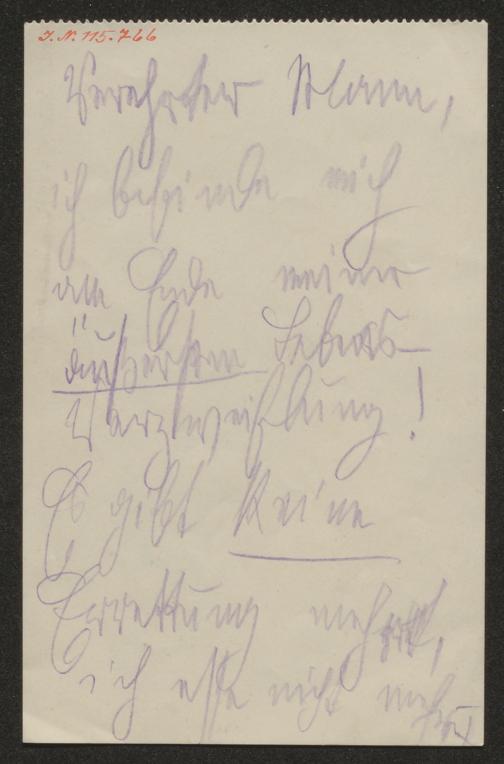 J.N. 115.766
Verehrter Mann,
ich befinde mich
am Ende meiner
äußersten Lebens-
Verzweiflung!
Es gibt keine
Errettung mehr,
ich esse nicht mehr